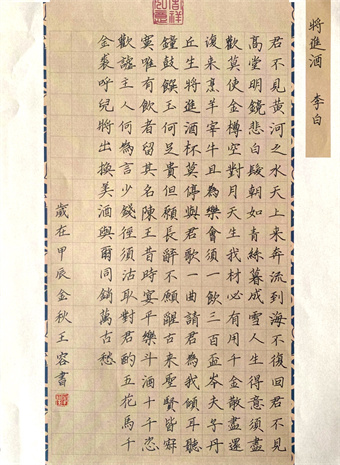 將進酒 李白
君不見黃河之水天上來奔流到海不復回君不見
高堂明鏡悲白髮朝如青絲暮成雪人生得意須盡
歡莫使金樽空對月天生我材必有用千金散盡還
復來烹羊宰牛且為樂會須一飲三百盃岑夫子丹
丘生將進酒杯莫停與君歌一曲請君為我傾耳聽
鐘鼓饌玉何足貴但願長醉不願醒古來聖賢皆寂
寞唯有飲者留其名陳王昔時宴平樂斗酒十千恣
歡謔主人何為言少錢徑須沽取對君酌五花馬千
金裘呼兒將出換美酒與爾同銷萬古愁
歲在甲辰金秋王容書